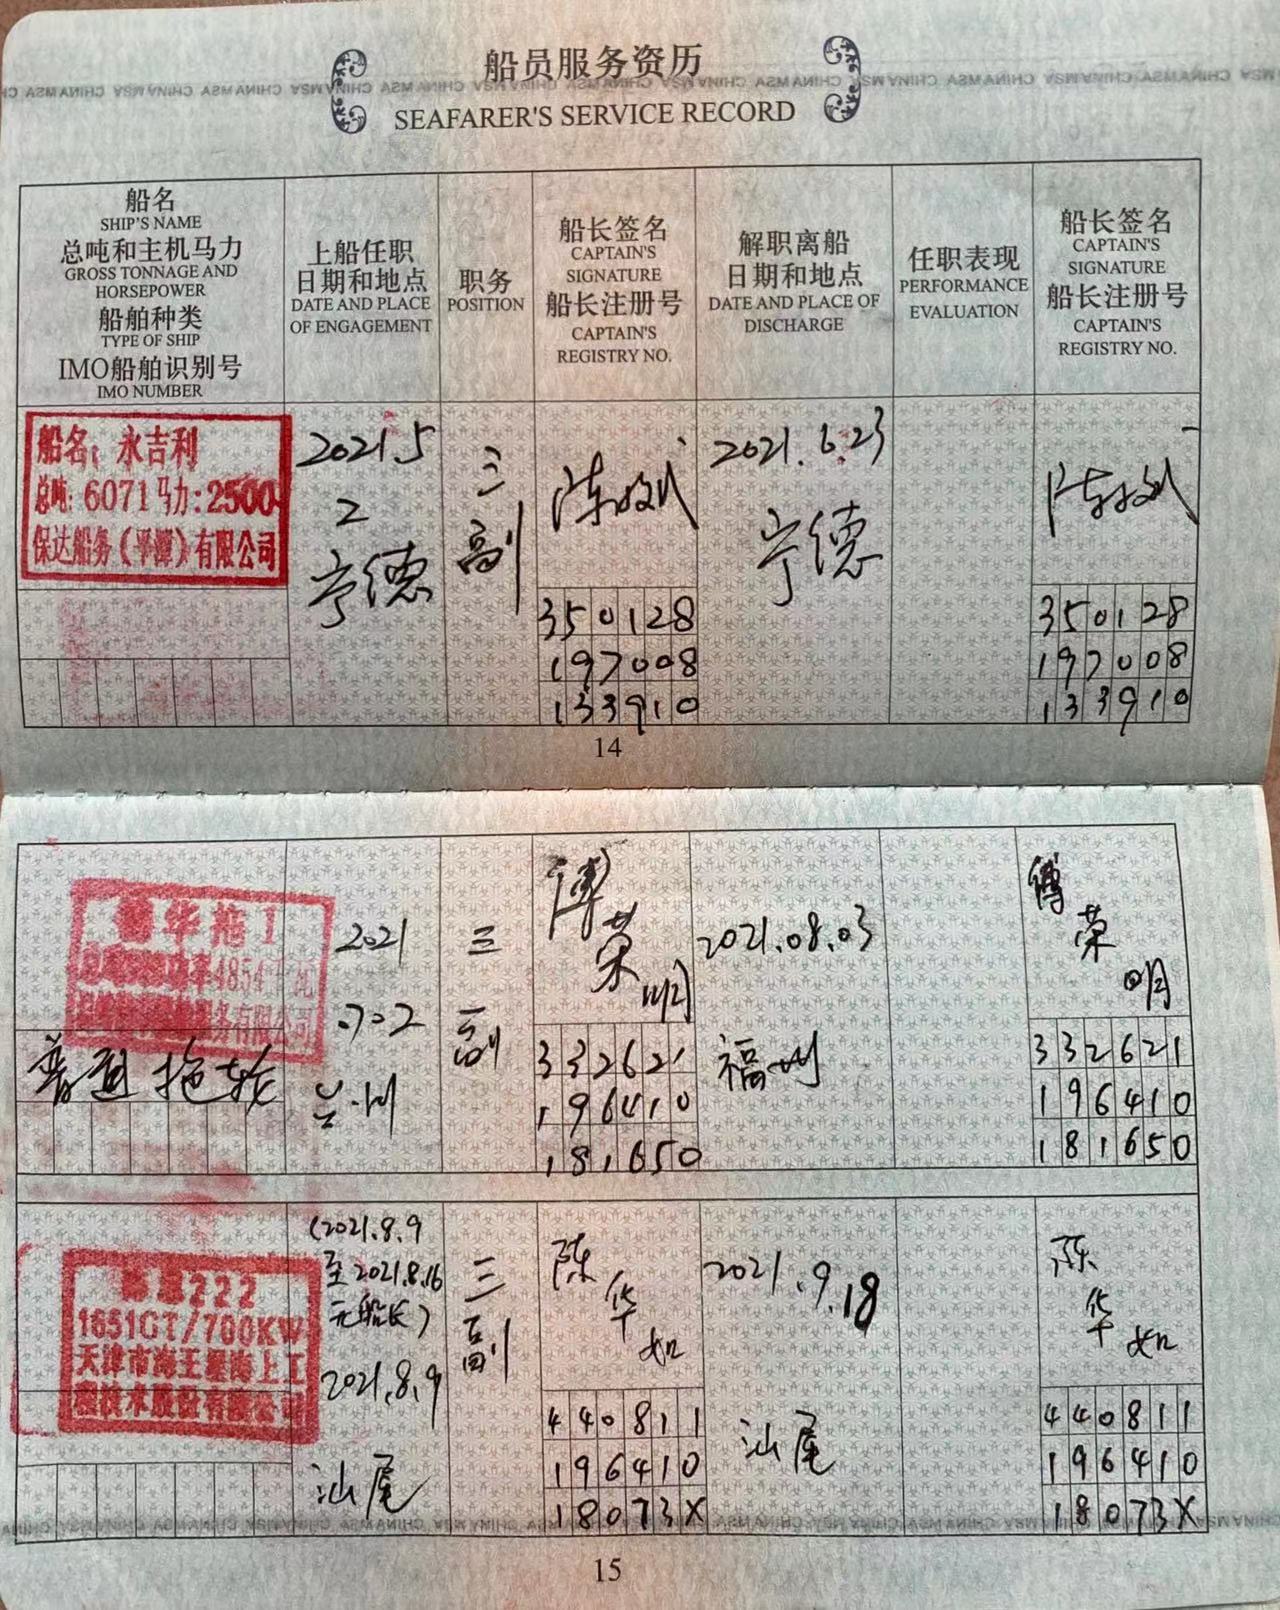 船员服务资历
CHINA MSA CHINA MSA CHINA MSA CHINA MSA CHINA MSA CHINA MSA
SEAFARER'S SERVICE RECORD
船名
SHIP'S NAME
总吨和主机马力
GROSS TONNAGE AND
HORSEPOWER
船舶种类
TYPE OF SHIP
IMO船舶识别号
IMO NUMBER
上船任职
日期和地点
DATE AND PLACE
OF ENGAGEMENT
职务
POSITION
船长签名
CAPTAIN'S
SIGNATURE
船长注册号
CAPTAIN'S
REGISTRY NO.
解职离船
日期和地点
DATE AND PLACE OF
DISCHARGE
任职表现
PERFORMANCE
EVALUATION
船长签名
CAPTAIN'S
SIGNATURE
船长注册号
CAPTAIN'S
REGISTRY NO.
船名: 永吉利
总吨: 6071 马力: 2500
保达船务(平潭)有限公司
2021.5
2
宁德
三
副
陈
350128
197008
133910
2021.6.23
宁德
陈
350128
197008
133910
14
华拖1
4854
务有限公司
普通拖轮
2021
.7.02
三
副
傅
荣
明
332621
196410
181650
2021.08.03
福州
傅
荣
明
332621
196410
181650
222
1651GT/700KW
天津市海王星海上工
程技术股份有限公司
(2021.8.9
至2021.8.16
无船长)
2021.8.9
汕尾
三
副
陈
华
如
440811
196410
18073X
2021.9.18
汕尾
陈
华
如
440811
196410
18073X
15